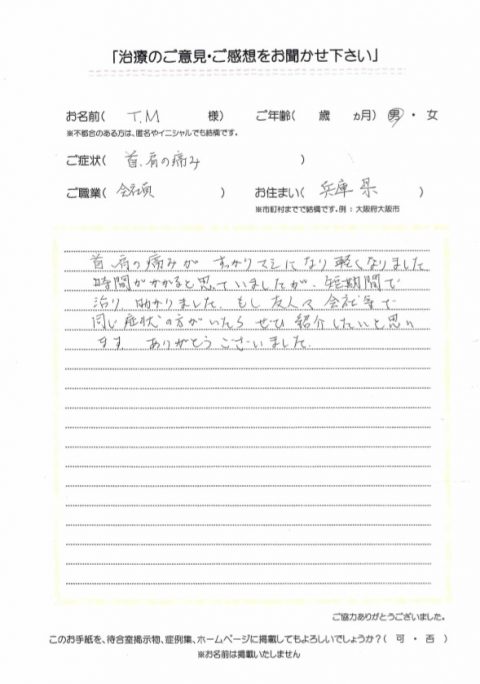 「治療のご意見・ご感想をお聞かせ下さい」
お名前( T.M 様) ご年齢( 歳 ヵ月) 男・女
※不都合のある方は、匿名やイニシャルでも結構です。
ご症状( 首、肩の痛み )
ご職業( 会社員 ) お住まい( 兵庫県 )
※市町村までで結構です。例：大阪府大阪市
首、肩の痛みが すっかりマシになり 軽くなりました
時間がかかると思っていましたが、短期間で
治り 助かりました。もし友人や会社等で
同じ症状の方がいたら ぜひ紹介したいと思い
ます ありがとうございました。
ご協力ありがとうございました。
このお手紙を、待合室掲示物、症例集、ホームページに掲載してもよろしいでしょうか?( 可 ・ 否 )
※お名前は掲載いたしません